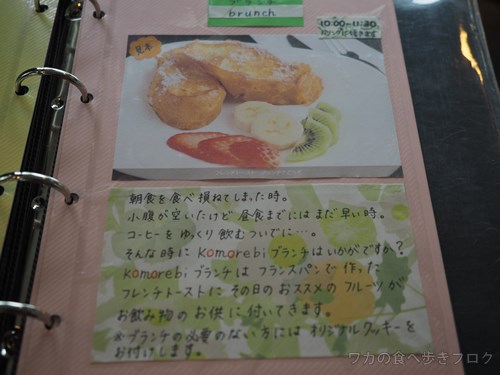 ブランチ
brunch
10:00~11:30
ドリンクに付きます
見本
朝食を食べ損ねてしまった時。
小腹が空いたけど昼食までにはまだ早い時。
コーヒーをゆっくり飲むついでに…。
そんな時にKomorebiブランチはいかがですか?
Komorebiブランチはフランスパンで作った
フレンチトーストにその日のおススメのフルーツが
お飲み物のお供に付いてきます。
※ブランチの必要のない方にはオリジナルクッキーを
お付けします。
ワカの食べ歩きブログ